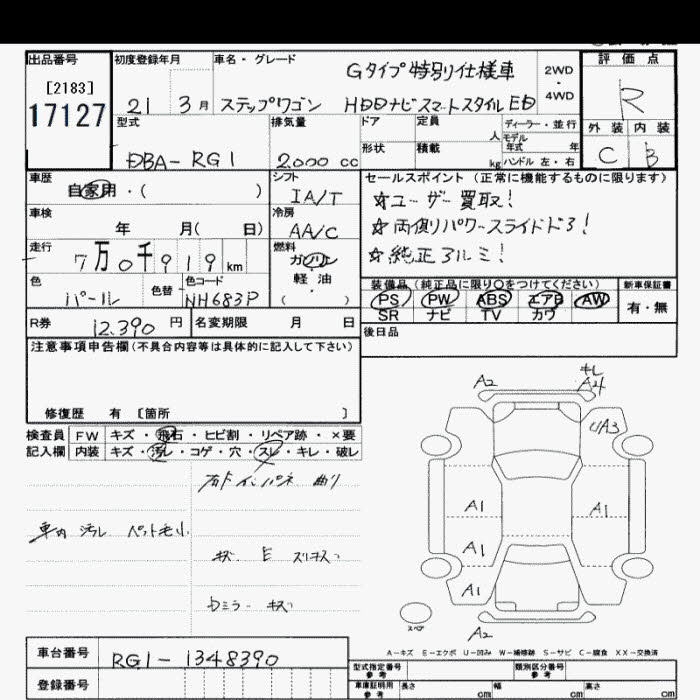 出品番号 初度登録年月 車名・グレード 評価点
[2183] Gタイプ特別仕様車 2WD
17127 21 3月 ステップワゴン HDDナビスマートスタイルED 4WD R
型式 排気量 ドア 定員 人 ディーラー・並行 外装 内装
モデル年式 年
DBA-RG1 2.000 cc 形状 積載 kg ハンドル 左・右 C B
車歴 シフト セールスポイント (正常に機能するものに限ります)
自家用・( ) IA/T ☆ユーザー買取!
車検 冷房 ☆両側パワースライドドア!
年 月( 日) AA/C ☆純正アルミ!
走行 燃料
7万0千919km ガソリン
軽油
・( )
色 色替 色コード 装備品 (純正品に限り○をつけてください) 新車保証書
パール NH683P PS PW ABS エアB AW 有・無
SR ナビ TV カワ
R券 12,390 円 名変期限 月 日 後日品
注意事項申告欄 (不具合内容等は具体的に記入して下さい)
修復歴 有 [箇所 ]
検査員 FW キズ・飛石・ヒビ割・リペア跡・×要
記入欄 内装 キズ・汚レ・コゲ・穴・スレ・キレ・破レ
A2 キレ A4
UA3
A1 A1
A1
A1
A2
スペア
右F インパネ 曲り
車内 汚レ ペット毛小
A-キズ E-エクボ U-凹み W-補修跡 S-サビ C-腐食 XX-交換済
車台番号 RG1-1348390
型式指定番号 参考 類別区分番号 参考
登録番号 車庫証明用 参考 長さ cm 幅 cm 高さ cm